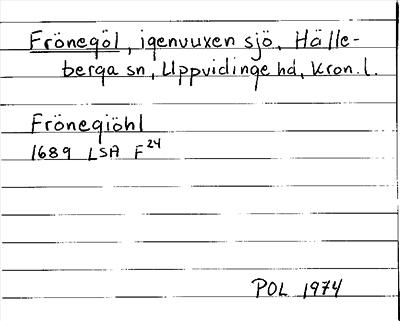 Frönegöl, igenvuxen sjö, Hälle-
berga sn, Uppvidinge hd, Kron. l.
Frönegiöhl
1689 LSA F24
POL 1974